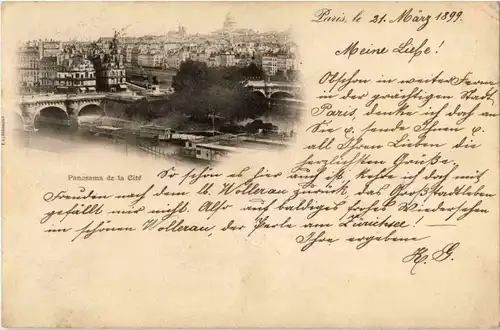 Paris, le 21. März 1899.
Meine Liebe!
Obschon in weiter Ferne
in der prächtigen Stadt
Paris, denke ich doch an
Sie u. sende Ihnen u.
all Ihren Lieben die
herzlichsten Grüße.
Panorama de la Cité
So schön es hier auch ist, kehre ich doch mit
Freuden nach dem lb. Wollerau zurück, das Großstadtleben
gefällt mir nicht. Also auf baldiges frohes Wiedersehen
im schönen Wollerau, der Perle am Zürichsee.
Ihre ergebene
K. G.